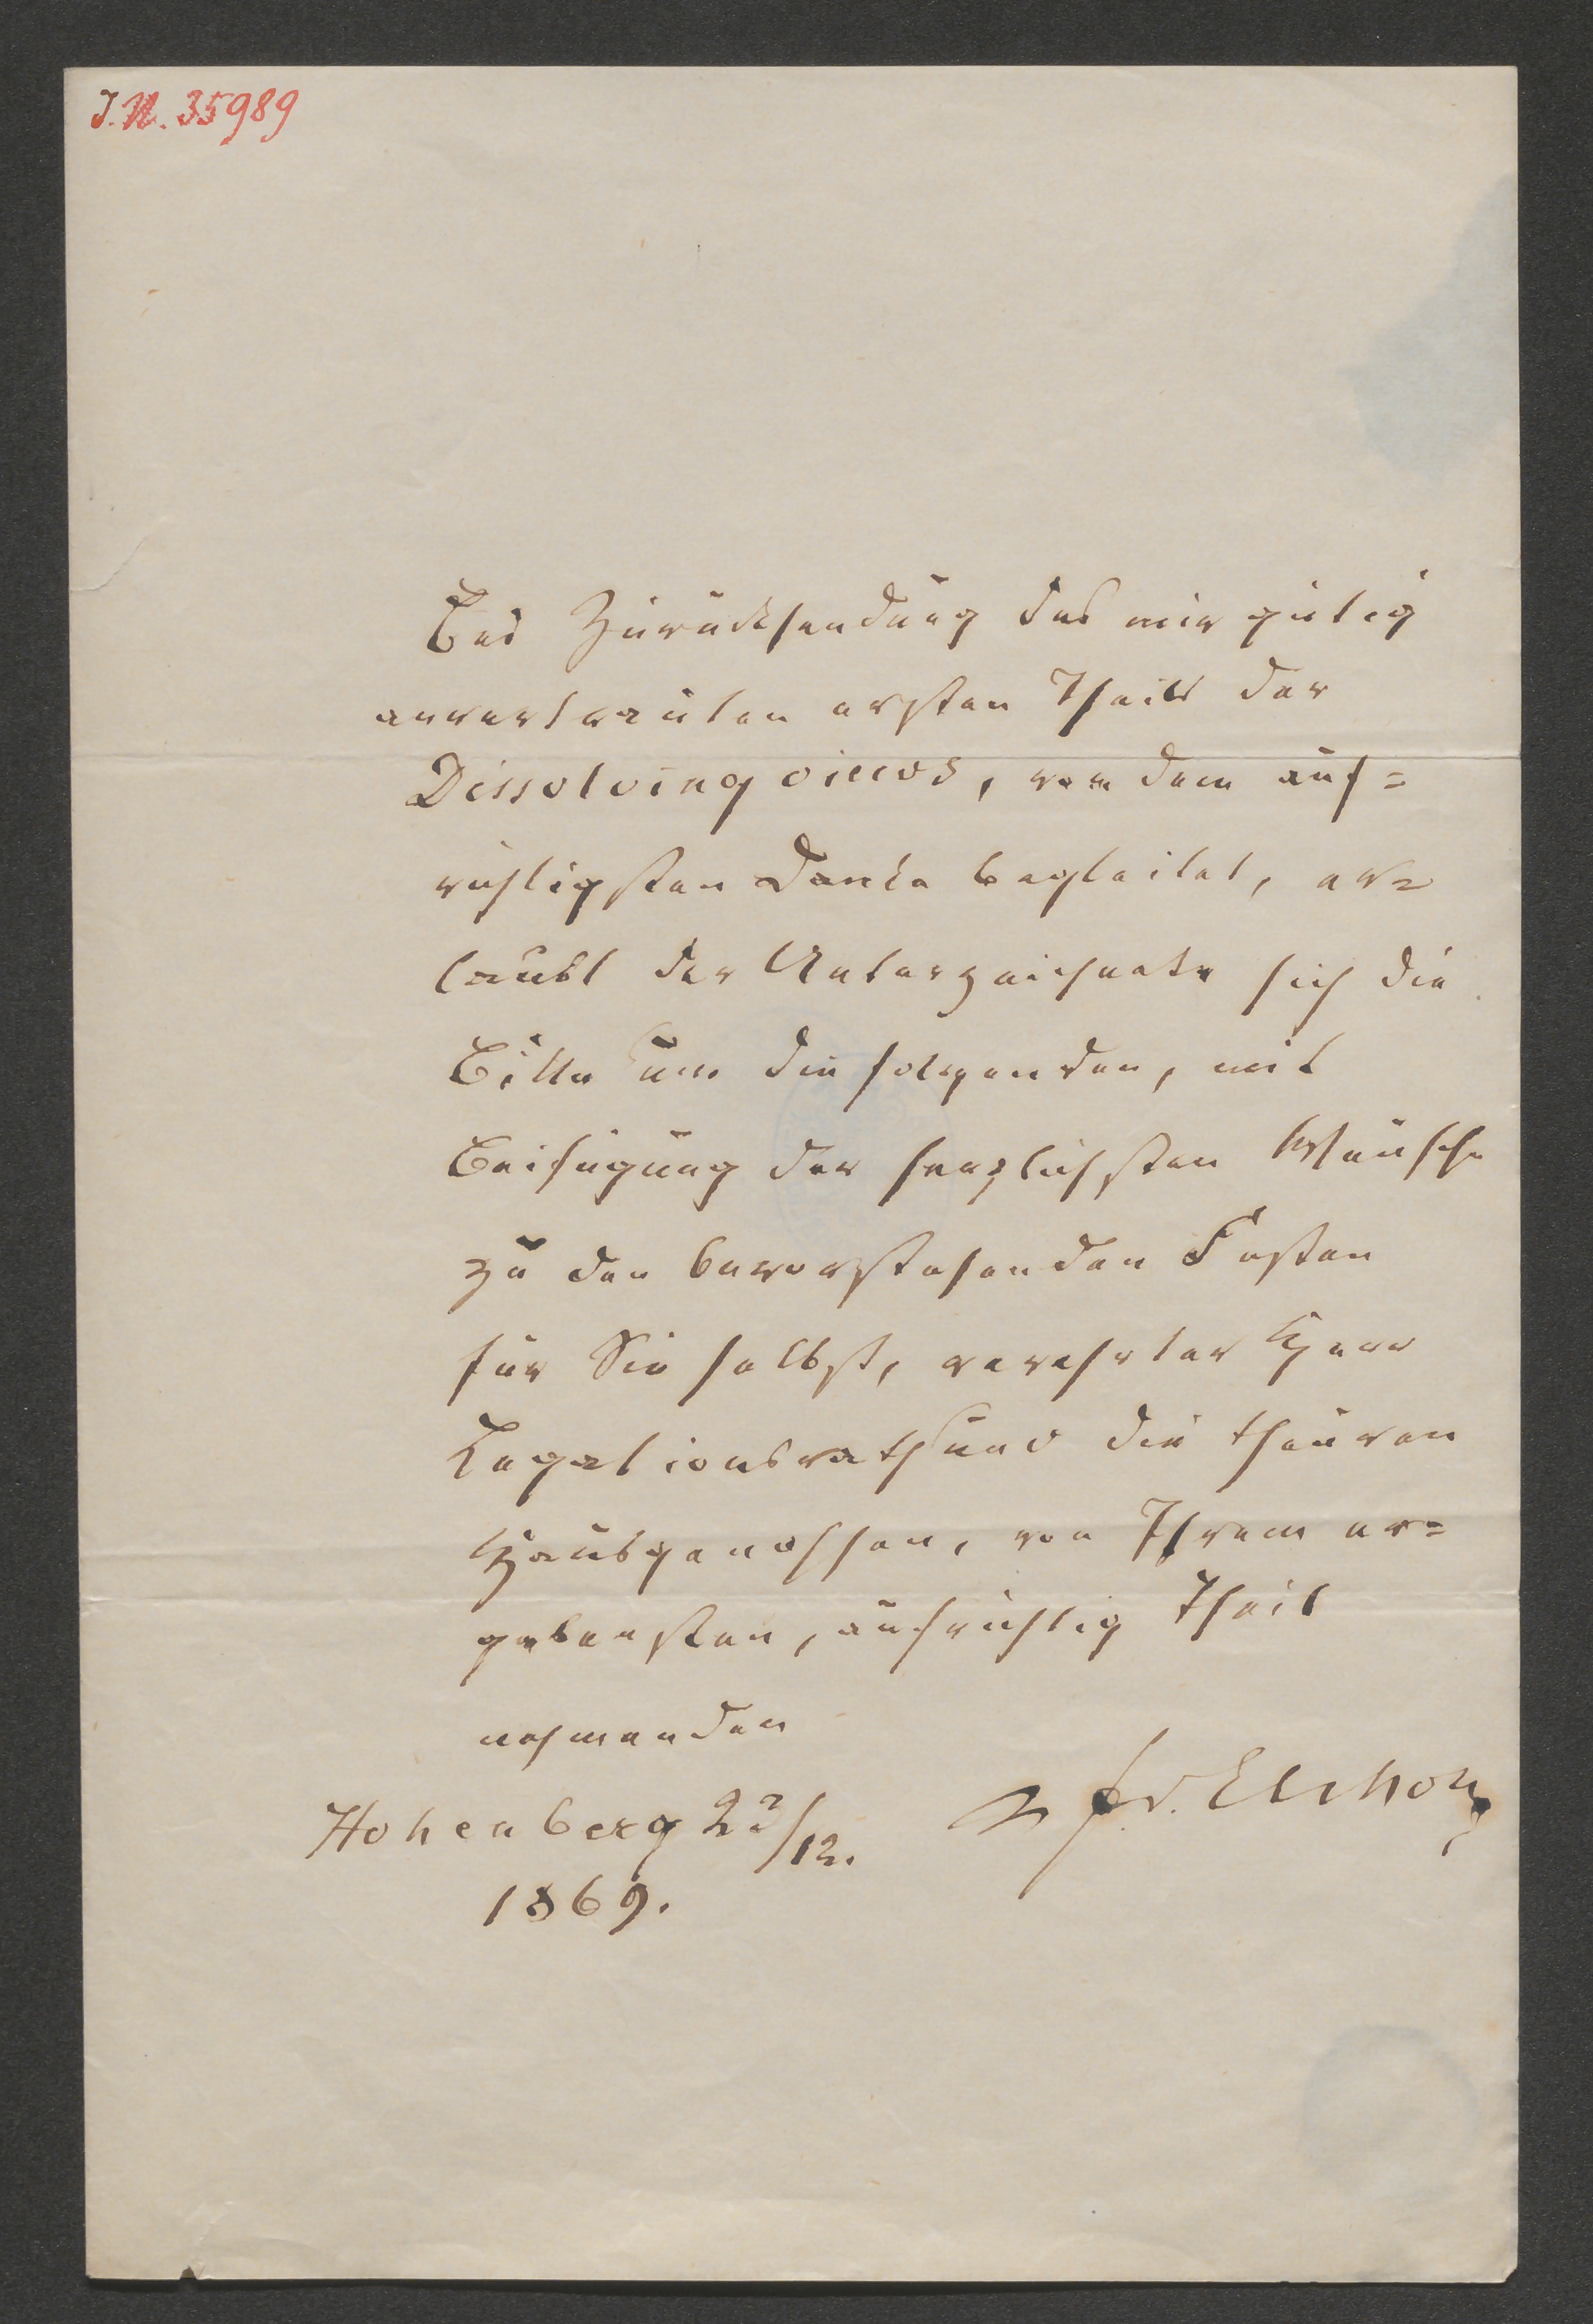 J. N. 35989
Bei Zurücksendung des mir gütig
anvertrauten ersten Theils der
Dissolving views, von dem auf=
richtigsten Danke begleitet, er=
laubt der Unterzeichnete sich die
Bitte um die folgenden, mit
Beifügung der herzlichsten Wünsche
zu den bevorstehenden Festen
für Sie selbst, verehrter Herr
Legationsrath und die theuren
Hausgenossen, von Ihrem er=
gebensten, aufrichtig Theil
nehmenden
Fr. v. Elsholz
Hohenberg 23/12.
1869.